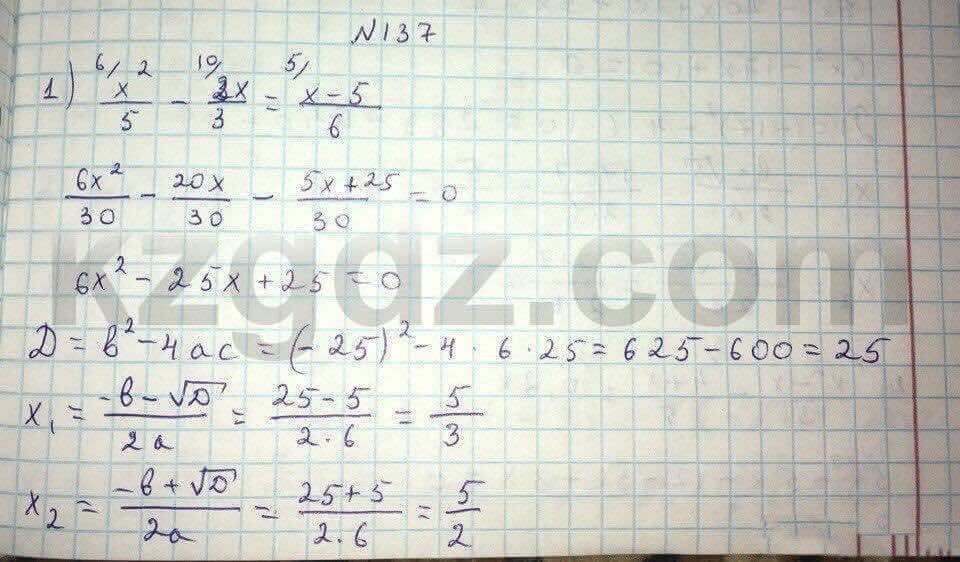 №137
1) 6/ x² / 5 - 10/ 2x / 3 = 5/ x-5 / 6
6x²/30 - 20x/30 - 5x+25/30 = 0
6x² - 25x + 25 = 0
kzgdz.com
D = b² - 4ac = (-25)² - 4 · 6 · 25 = 625 - 600 = 25
x₁ = -b - √D / 2a = 25 - 5 / 2·6 = 5/3
x₂ = -b + √D / 2a = 25 + 5 / 2·6 = 5/2